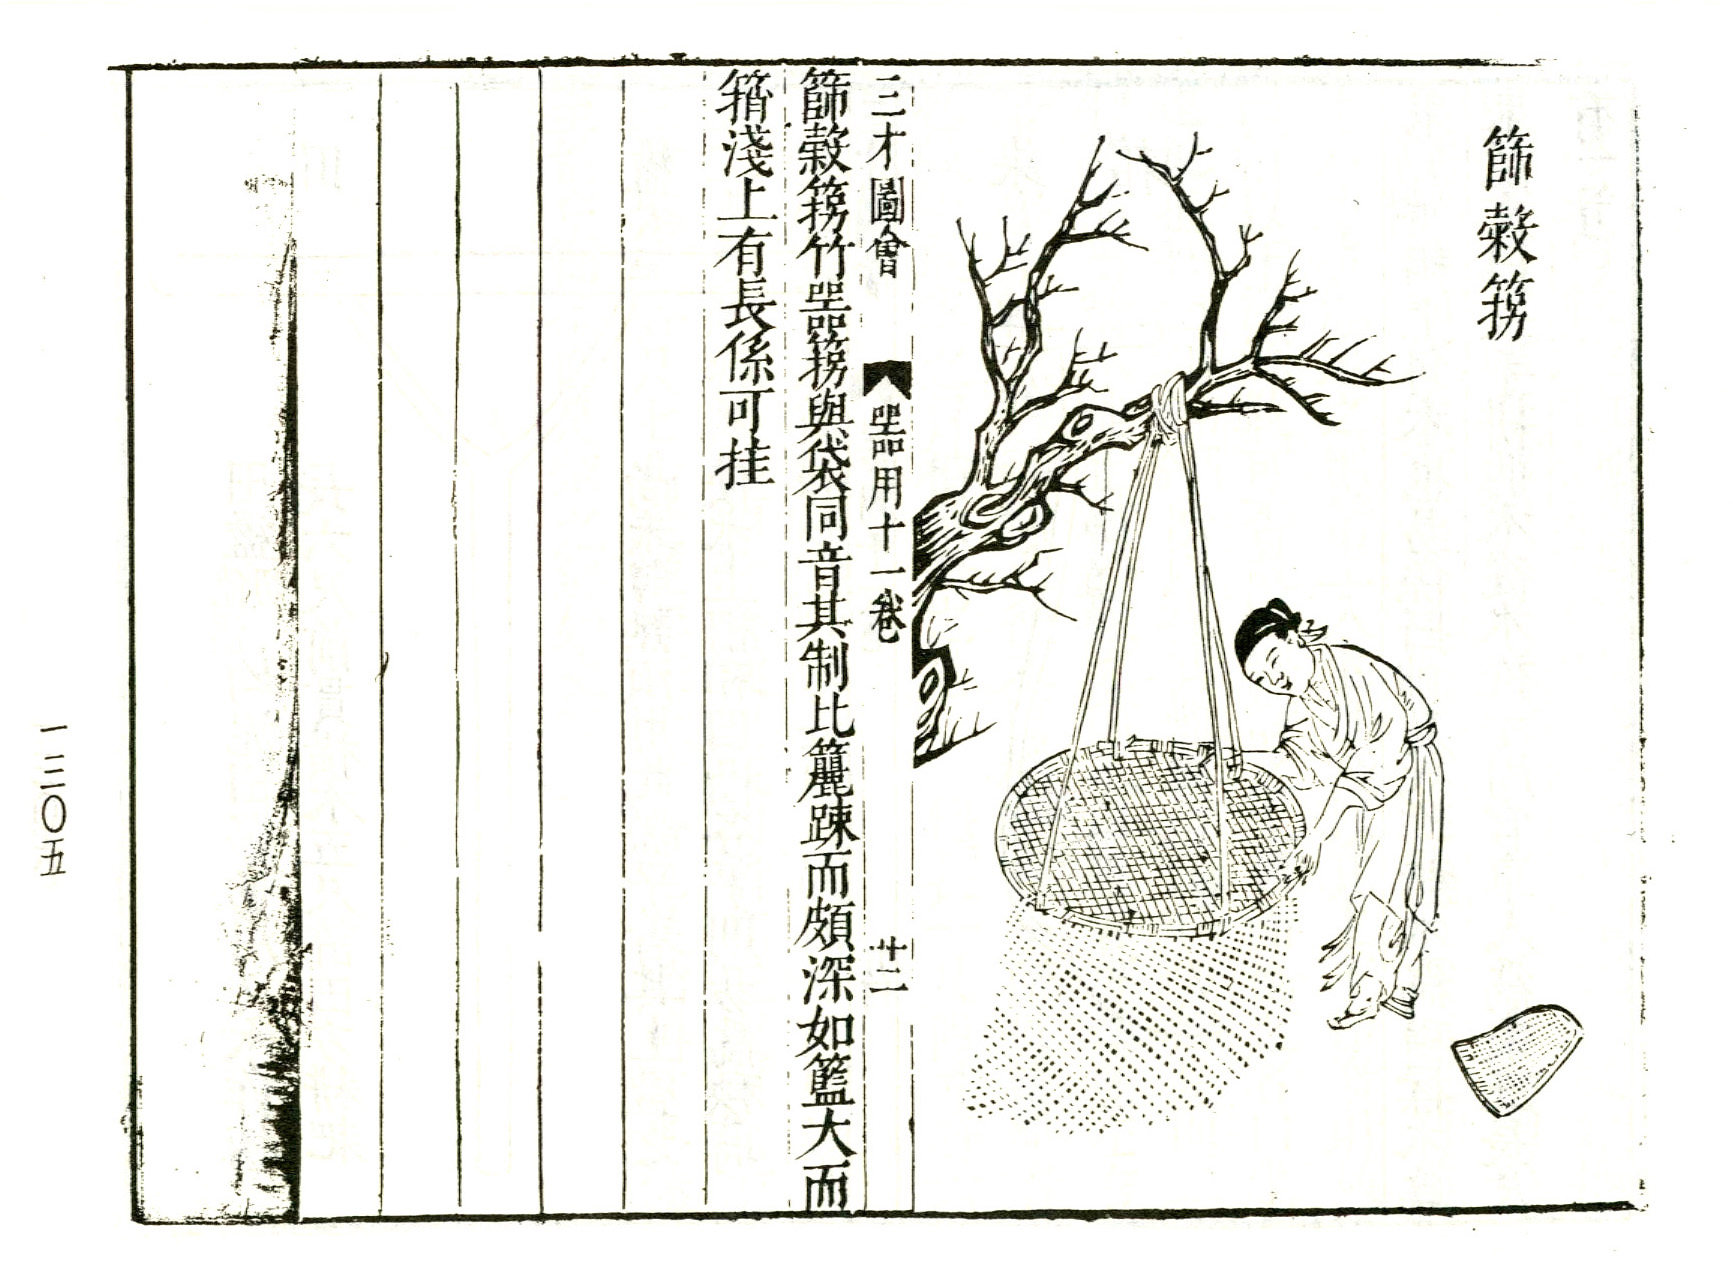 篩穀箉
三才圖會 器用十一卷 十二
篩穀箉竹器箉與袋同音其制比籭踈而頗深如籃大而
稍淺上有長係可挂
一三〇五